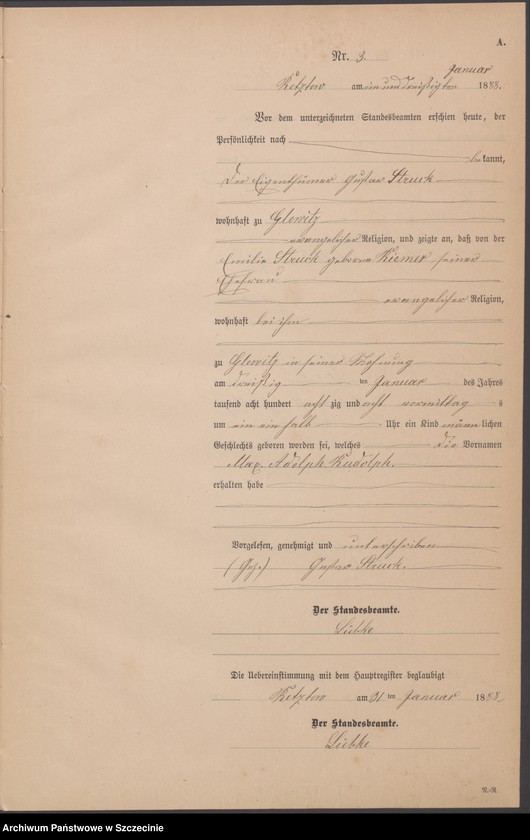 A.
Nr. 3.
Januar
am ein und dreißigten 1888.
Vor dem unterzeichneten Standesbeamten erschien heute, der
Persönlichkeit nach
bekannt,
der Eigenthümer Gustav Struck
wohnhaft zu Glewitz
evangelischer Religion, und zeigte an, daß von der
Emilie Struck geborne Riemer seiner
Ehefrau
evangelischer Religion,
wohnhaft bei ihm
zu Glewitz in seiner Wohnung
am dreißig ten Januar des Jahres
tausend acht hundert acht zig und acht vormittag s
um ein ein halb Uhr ein Kind männlichen
Geschlechts geboren worden sei, welches die Vornamen
Max Adolph Rudolph.
erhalten habe
Vorgelesen, genehmigt und unterschrieben
(Gez.) Gustav Struck.
Der Standesbeamte.
Lübke
Die Uebereinstimmung mit dem Hauptregister beglaubigt
am 31 ten Januar 1888.
Der Standesbeamte.
Lübke
R.-R.
Archiwum Państwowe w Szczecinie